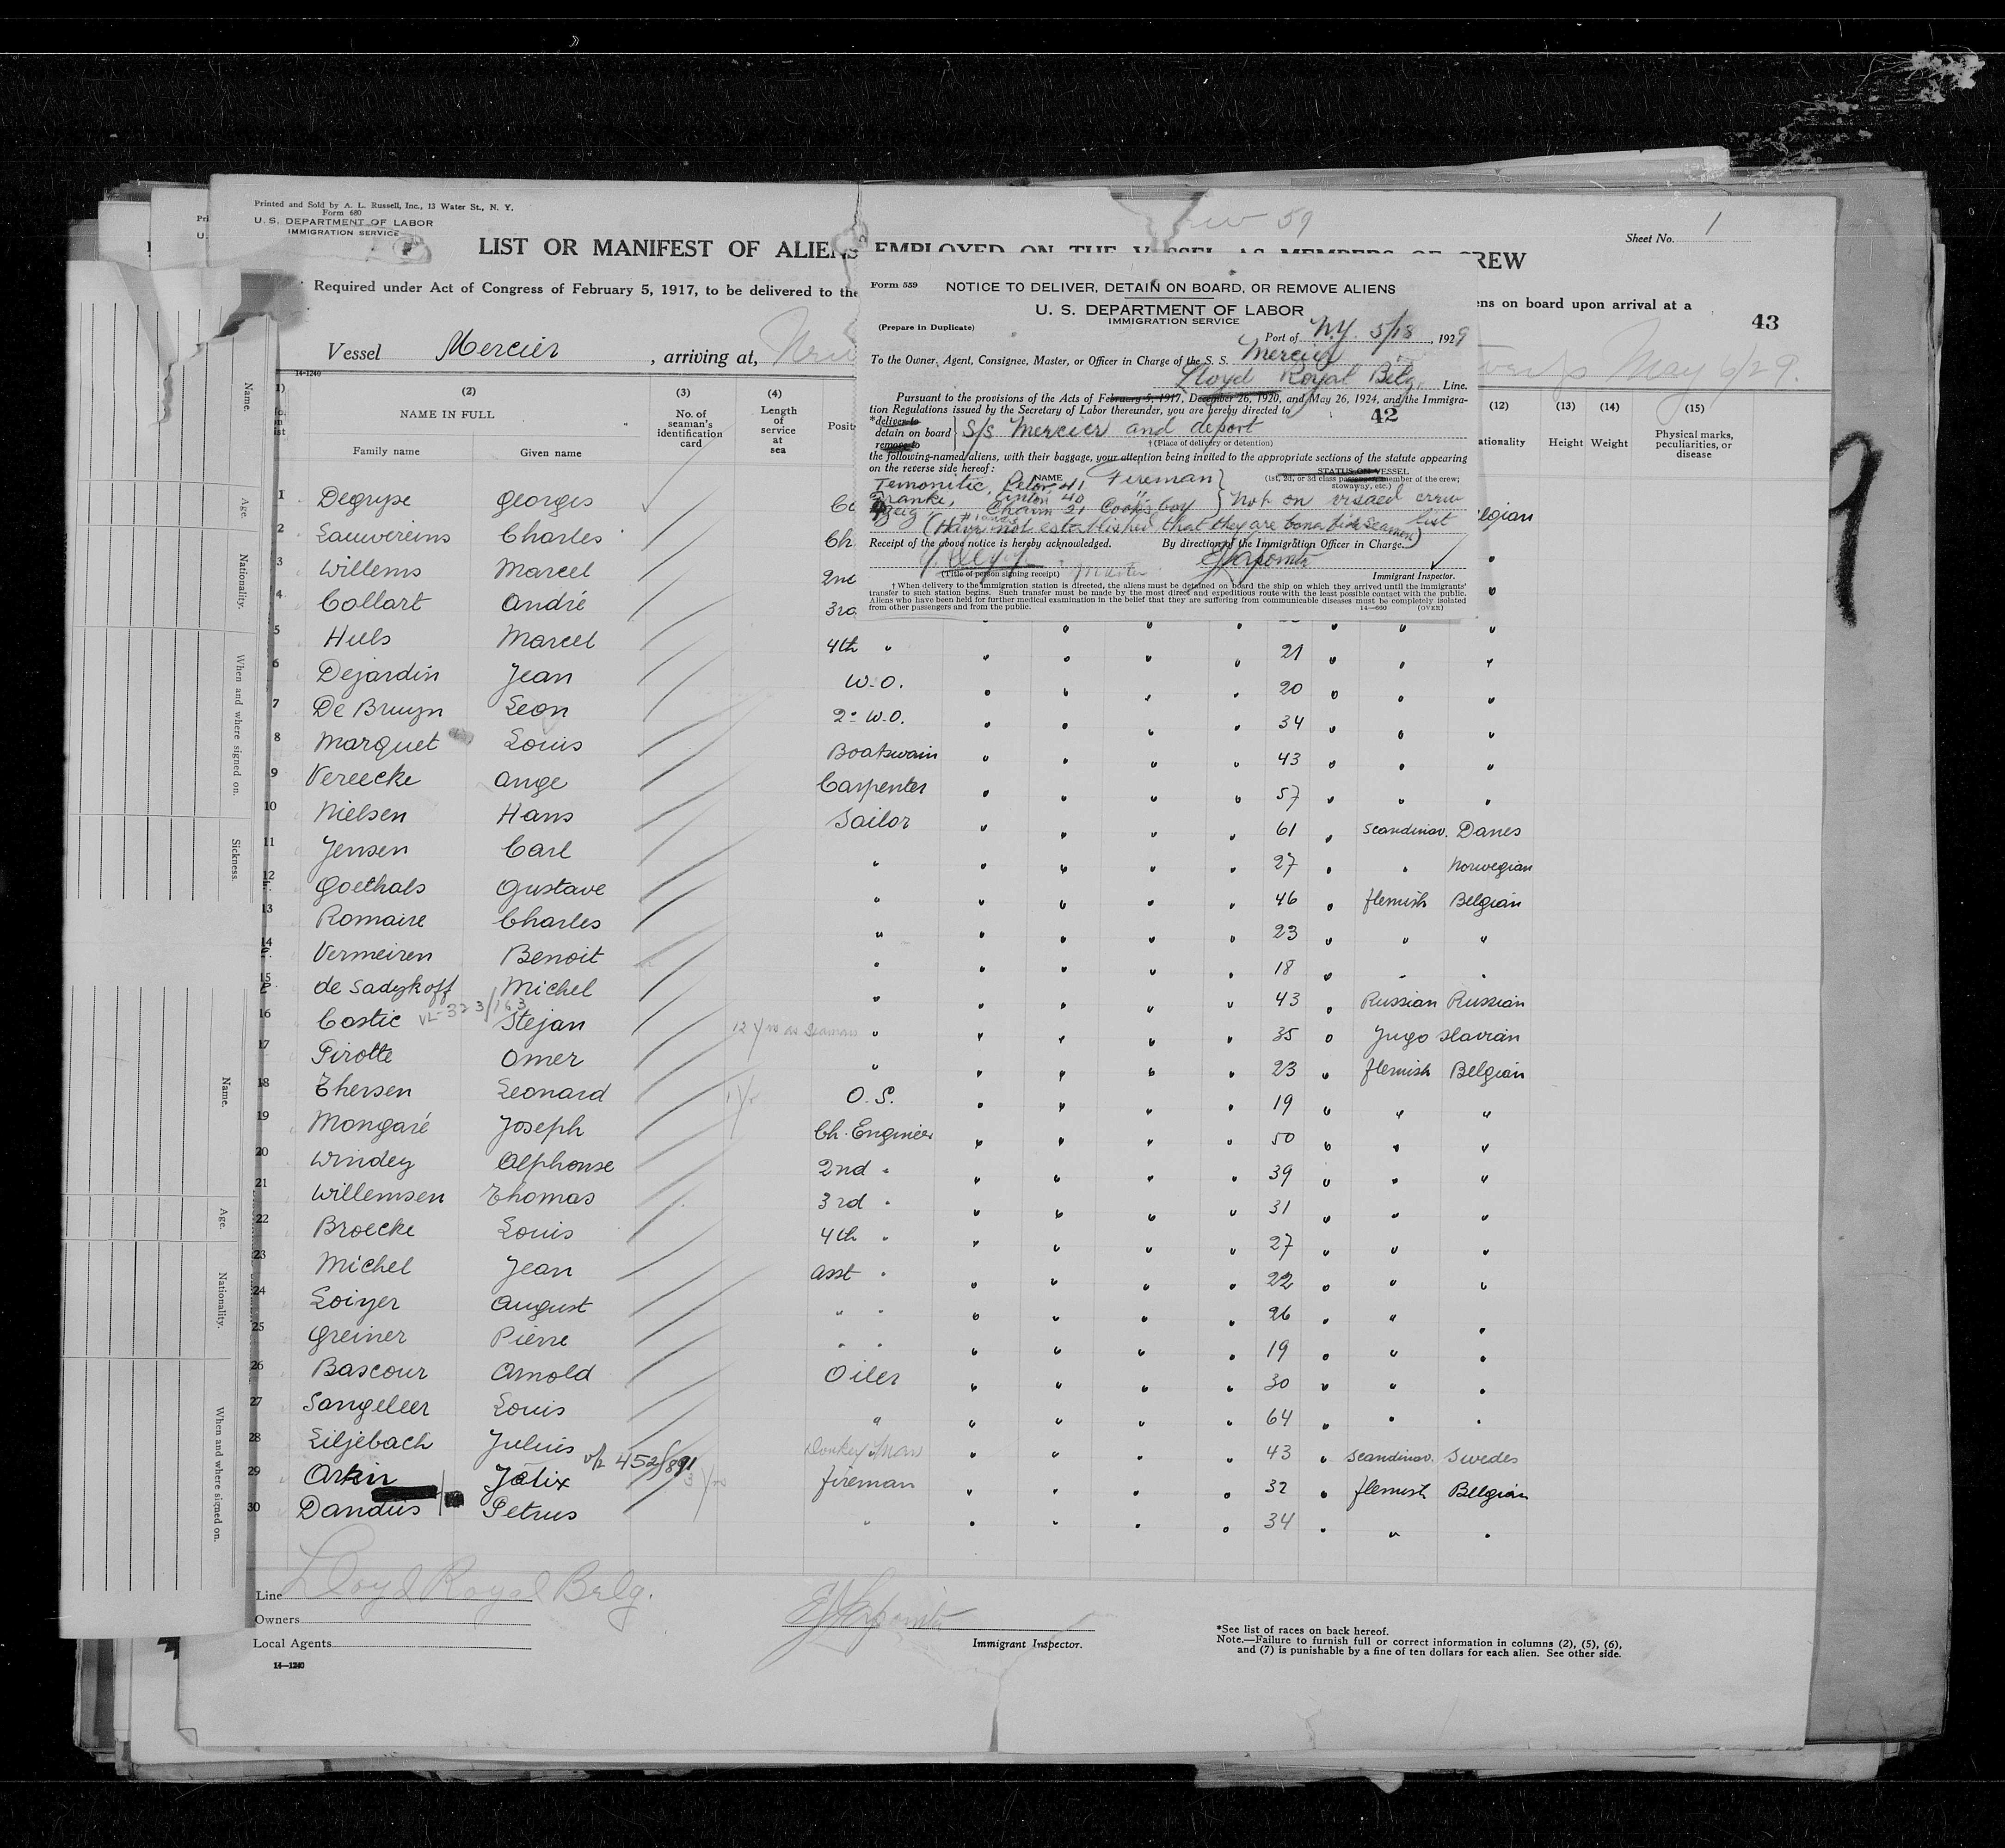 Printed and Sold by A. L. Russell, Inc., 13 Water St., N. Y.
Form 680
U. S. DEPARTMENT OF LABOR
IMMIGRATION SERVICE
59
Sheet No. 1
LIST OR MANIFEST OF ALIENS EMPLOYED ON THE VESSEL AS MEMBERS OF CREW
Required under Act of Congress of February 5, 1917, to be delivered to the
ens on board upon arrival at a
43
Vessel Mercier, arriving at,
May 6/29.
Form 559
NOTICE TO DELIVER, DETAIN ON BOARD, OR REMOVE ALIENS
U. S. DEPARTMENT OF LABOR
IMMIGRATION SERVICE
(Prepare in Duplicate)
Port of N.Y. 5/18, 1929
To the Owner, Agent, Consignee, Master, or Officer in Charge of the S. S. Mercier
Lloyd Royal Belg. Line.
Pursuant to the provisions of the Acts of February 5, 1917, December 26, 1920, and May 26, 1924, and the Immigra-
tion Regulations issued by the Secretary of Labor thereunder, you are hereby directed to
42
*deliver to
detain on board
remove to
S/S Mercier and deport
†(Place of delivery or detention)
the following-named aliens, with their baggage, your attention being invited to the appropriate sections of the statute appearing
on the reverse side hereof:
NAME
STATUS ON VESSEL
(1st, 2d, or 3d class passenger, member of the crew; stowaway, etc.)
Temonitic, Peter 41 Fireman
Franke, Anton 40 "
Chaim 21 Cook's boy
not on visaed crew list
(Have not established that they are bona fide seamen)
Receipt of the above notice is hereby acknowledged. By direction of the Immigration Officer in Charge.
(Title of person signing receipt) Master
Immigrant Inspector.
†When delivery to the immigration station is directed, the aliens must be detained on board the ship on which they arrived until the immigrants'
transfer to such station begins. Such transfer must be made by the most direct and expeditious route with the least possible contact with the public.
Aliens who have been held for further medical examination in the belief that they are suffering from communicable diseases must be completely isolated
from other passengers and from the public.
14—660 (OVER)
14-1240
(2) (3) (4) (12) (13) (14) (15)
NAME IN FULL
Family name Given name
No. of seaman's identification card
Length of service at sea
Height Weight
Physical marks, peculiarities, or disease
1 Degrype Georges
2 Lauwereins Charles Ch.
3 Willems Marcel 2nd
4 Collart André 3rd
5 Huls Marcel 4th " 21
6 Dejardin Jean W.O. 20
7 De Bruyn Leon 2e W.O. 34
8 Marquet Louis Boatswain 43
9 Vereecke Ange Carpenter 57
10 Nielsen Hans Sailor 61 Scandinav. Danes
11 Jensen Carl " 27 " Norwegian
12 Goethals Gustave " 46 flemish Belgian
13 Romaire Charles " 23 " "
14 Vermeiren Benoit " 18 " "
15 de Sadykoff Michel " 43 Russian Russian
16 Costic Stejan 12 yrs as Seaman " 35 Jugo Slavian
17 Pirotte Omer " 23 flemish Belgian
18 Thersen Leonard O.S. 19 " "
19 Mongaré Joseph Ch. Engineer 50 " "
20 Windey Alphonse 2nd " 39 " "
21 Willemsen Thomas 3rd " 31 " "
22 Broecke Louis 4th " 27 " "
23 Michel Jean asst " 22 " "
24 Loiyer August " " 26 " "
25 Greiner Pierre " " 19 " "
26 Bascour Arnold Oiler 30 " "
27 Sangeleer Louis " 64 " "
28 Liljebach Julius Donkeyman 43 Scandinav. Swedes
29 Arkin Félix 452/891 fireman 32 flemish Belgian
30 Dandus Petrus " 34 " "
Line Lloyd Royal Belg.
Owners
Local Agents
Immigrant Inspector.
14—1240
*See list of races on back hereof.
Note.—Failure to furnish full or correct information in columns (2), (5), (6),
and (7) is punishable by a fine of ten dollars for each alien. See other side.
Name.
Age.
Nationality.
When and where signed on.
Sickness.
Name.
Age.
Nationality.
When and where signed on.